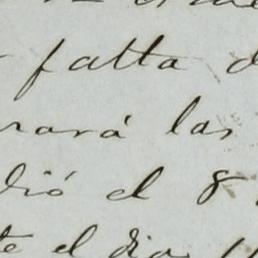 falta d
rará las
dió el 8
te el dia